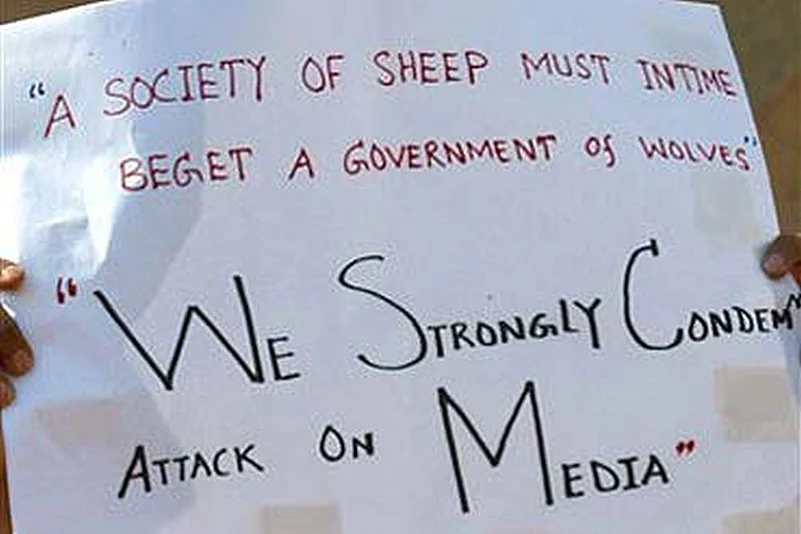 "A SOCIETY OF SHEEP MUST INTIME
BEGET A GOVERNMENT Of WOLVES"
"WE STRONGLY CONDEM"
ATTACK ON MEDIA"